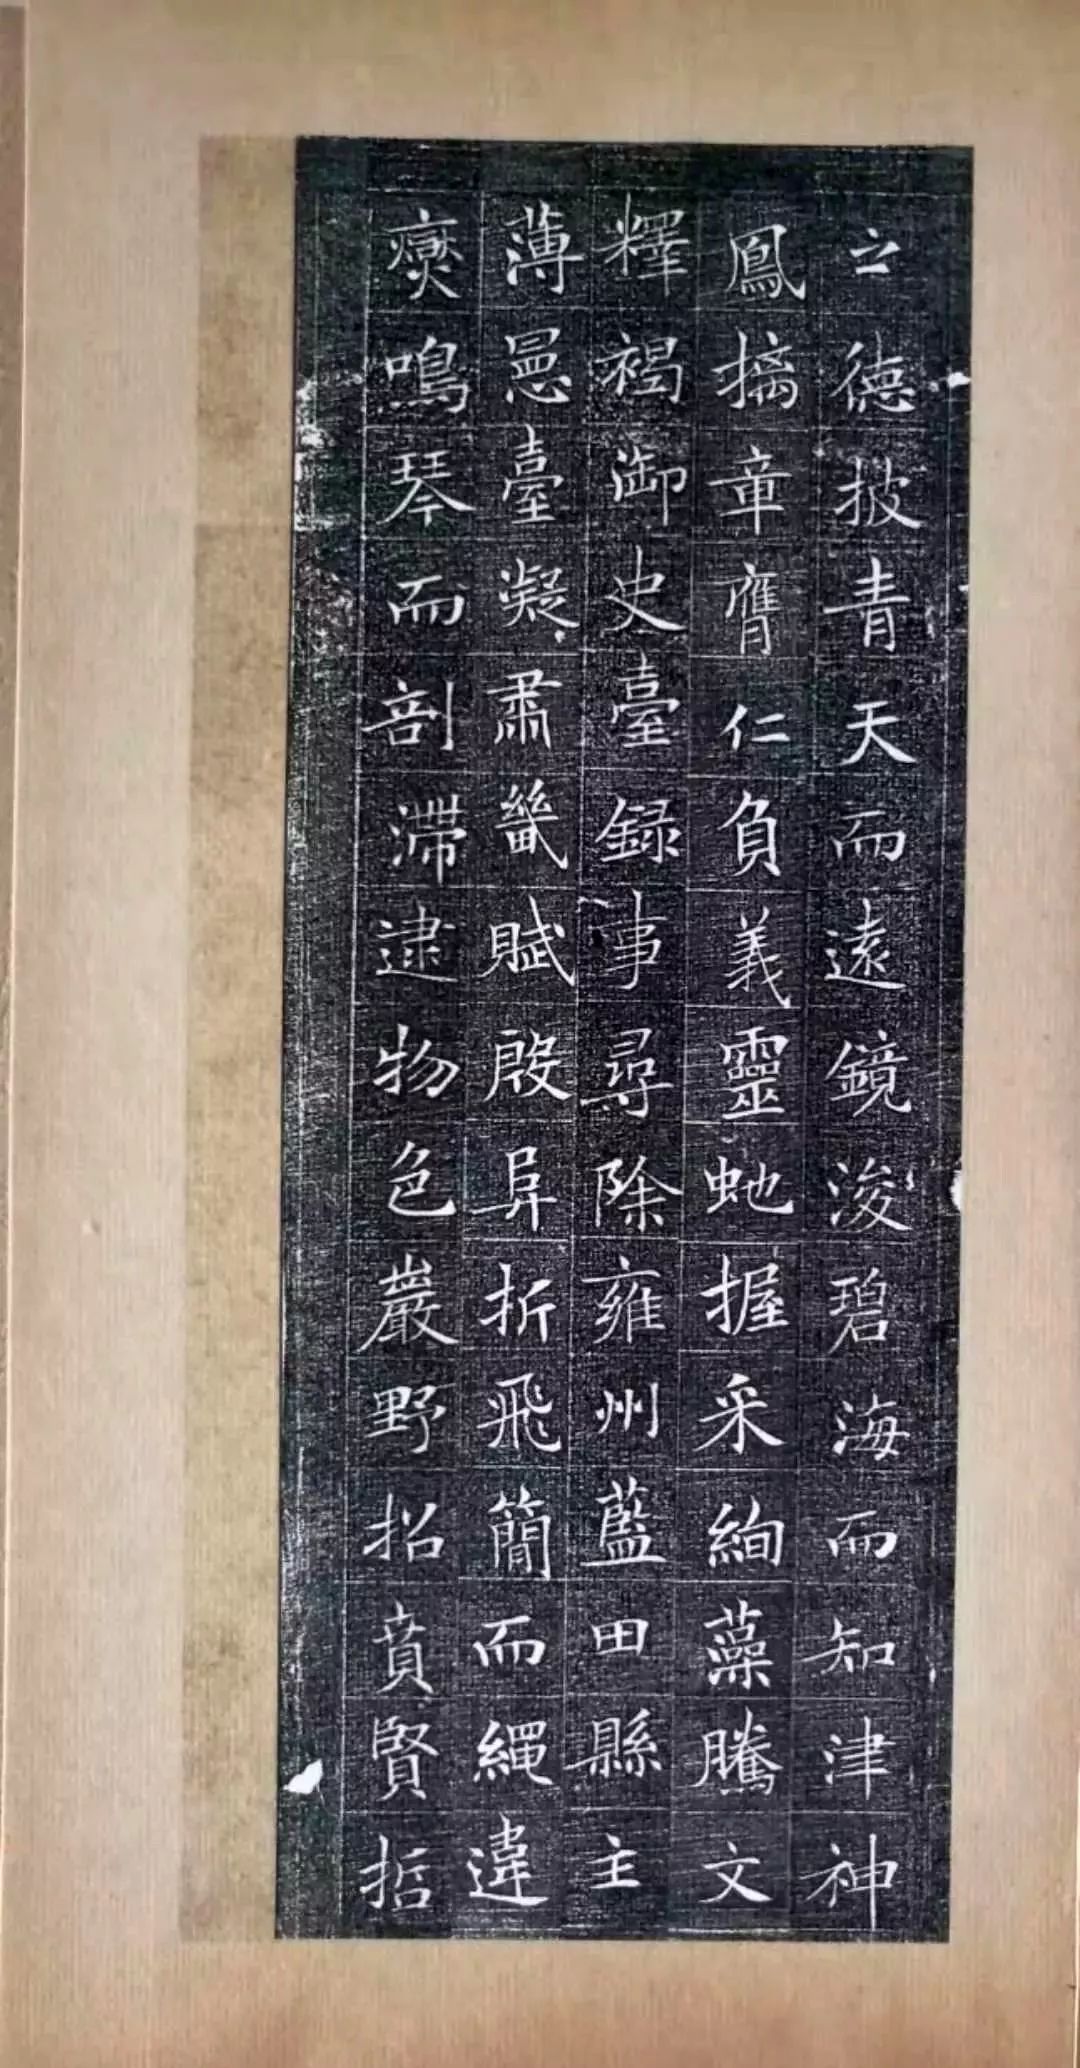 之德披青天而遠鏡浚碧海而知津神
鳳摛章膺仁負義靈虵握采絢藻騰文
釋褐御史臺録事尋除雍州藍田縣主
薄邑臺凝肅畿賦殷阜折飛簡而繩違
鳴琴而剖滯逮物色巖野招賁賢哲